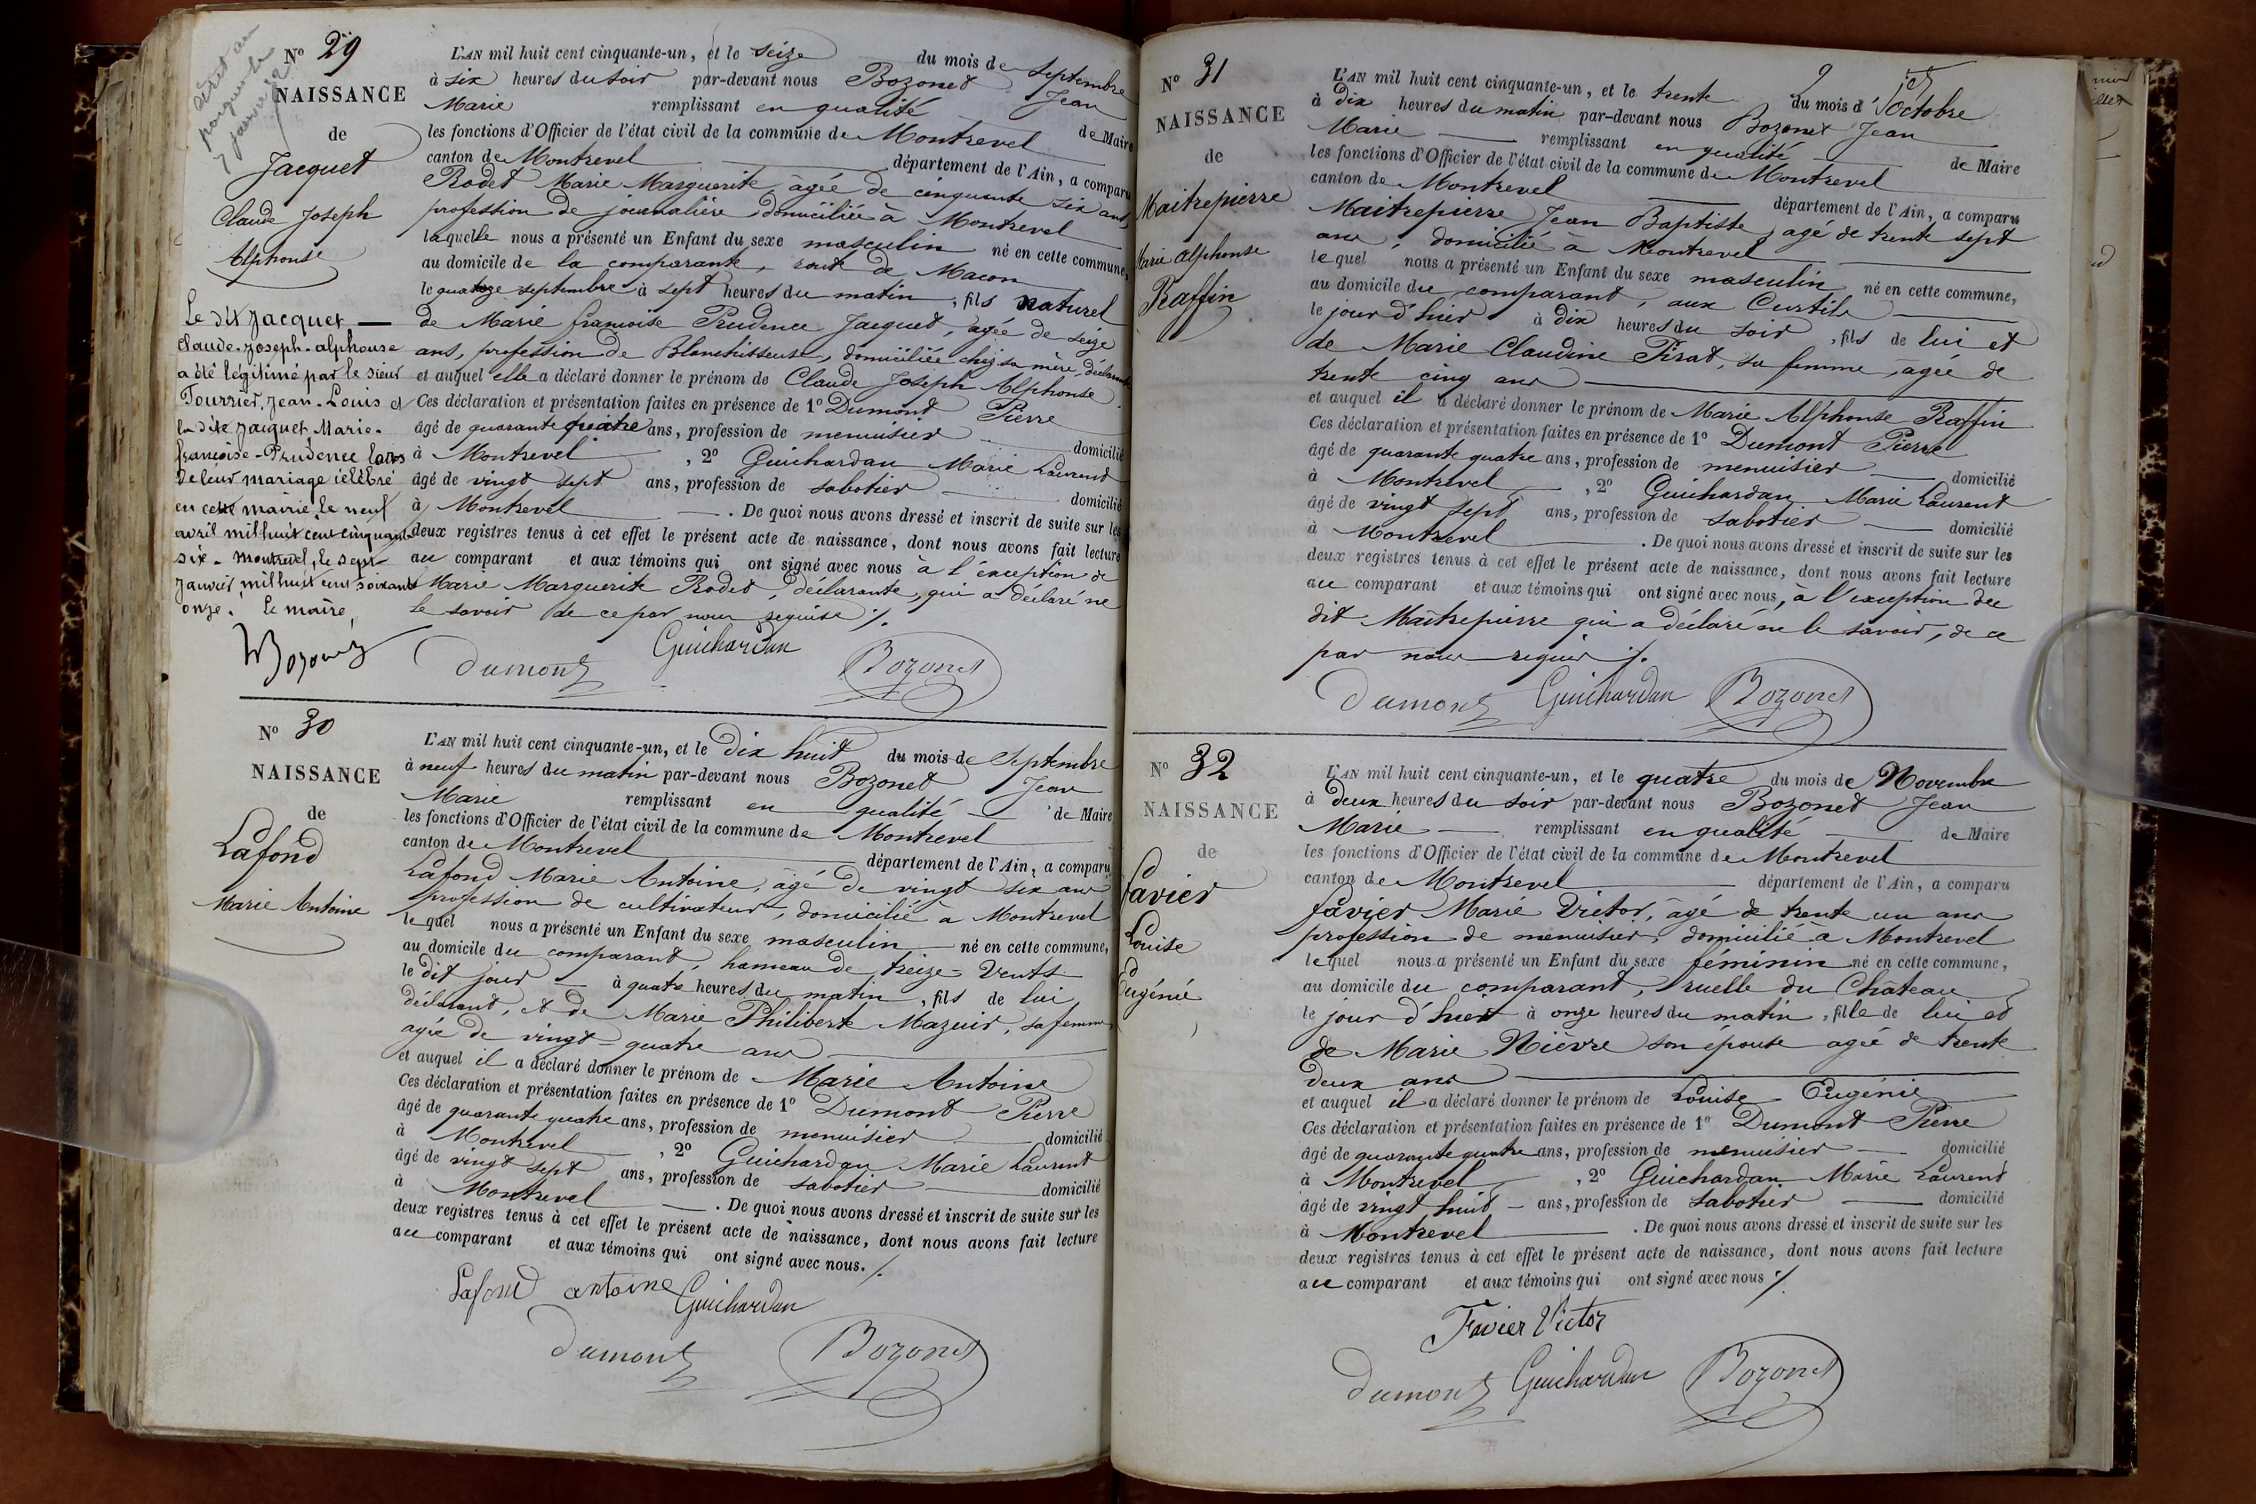 N° 29
NAISSANCE
de
Jacquet
Claude Joseph
Alphonse
Le dit Jacquet
Claude-Joseph-alphonse
a été légitimé par le sieur
Tourrier, Jean-Louis et
la dite Jacquet Marie-
françoise-Prudence lors
de leur mariage célébré
en cette mairie le neuf
avril mil huit cent cinquante
six. Montrevel, le sept
Janvier, mil huit cent soixante
onze. Le maire,
Bozonet
L'AN mil huit cent cinquante-un, et le seize du mois de Septembre
à six heures du soir par-devant nous Bozonet Jean
Marie remplissant en qualité de Maire
les fonctions d'Officier de l'état civil de la commune de Montrevel
canton de Montrevel département de l'Ain, a comparu
Rodet Marie Marguerite, âgée de cinquante six ans,
profession de journalière domiciliée à Montrevel
laquelle nous a présenté un Enfant du sexe masculin né en cette commune,
au domicile de la comparante, route de Macon
le quatorze septembre à sept heures du matin, fils naturel
de Marie françoise Prudence Jacquet, âgée de seize
ans, profession de Blanchisseuse, domiciliée chez sa mère, déclarante
et auquel elle a déclaré donner le prénom de Claude Joseph Alphonse.
Ces déclaration et présentation faites en présence de 1° Dumont Pierre
âgé de quarante quatre ans, profession de menuisier domicilié
à Montrevel, 2° Guichardan Marie Laurent
âgé de vingt sept ans, profession de sabotier domicilié
à Montrevel. De quoi nous avons dressé et inscrit de suite sur les
deux registres tenus à cet effet le présent acte de naissance, dont nous avons fait lecture
au comparant et aux témoins qui ont signé avec nous à l'exception de
Marie Marguerite Rodet, déclarante, qui a déclaré ne
le savoir de ce par nous requise ./.
Dumont Guichardan Bozonet
N° 30
NAISSANCE
de
Lafond
Marie Antoine
L'AN mil huit cent cinquante-un, et le dix huit du mois de Septembre
à neuf heures du matin par-devant nous Bozonet Jean
Marie remplissant en qualité de Maire
les fonctions d'Officier de l'état civil de la commune de Montrevel
canton de Montrevel département de l'Ain, a comparu
Lafond Marie Antoine, âgé de vingt six ans
profession de cultivateur, domicilié à Montrevel
lequel nous a présenté un Enfant du sexe masculin né en cette commune,
au domicile du comparant, hameau de treize Vents
le dit jour à quatre heures du matin, fils de lui
déclarant, et de Marie Philiberte Mazuir, sa femme
agée de vingt quatre ans
et auquel il a déclaré donner le prénom de Marie Antoine
Ces déclaration et présentation faites en présence de 1° Dumont Pierre
âgé de quarante quatre ans, profession de menuisier domicilié
à Montrevel, 2° Guichardan Marie Laurent
âgé de vingt sept ans, profession de sabotier domicilié
à Montrevel. De quoi nous avons dressé et inscrit de suite sur les
deux registres tenus à cet effet le présent acte de naissance, dont nous avons fait lecture
au comparant et aux témoins qui ont signé avec nous. ./.
Lafond antoine Guichardan
Dumont Bozonet
N° 31
NAISSANCE
de
Maitrepierre
Marie Alphonse
Raffin
L'AN mil huit cent cinquante-un, et le trente du mois d'Octobre
à dix heures du matin par-devant nous Bozonet Jean
Marie remplissant en qualité de Maire
les fonctions d'Officier de l'état civil de la commune de Montrevel
canton de Montrevel département de l'Ain, a comparu
Maitrepierre Jean Baptiste, agé de trente sept
ans, domicilié à Montrevel
lequel nous a présenté un Enfant du sexe masculin né en cette commune,
au domicile du comparant, aux Curtils
le jour d'hier à dix heures du soir, fils de lui et
de Marie Claudine Pirat, sa femme, agée de
trente cinq ans
et auquel il a déclaré donner le prénom de Marie Alphonse Raffin
Ces déclaration et présentation faites en présence de 1° Dumont Pierre
âgé de quarante quatre ans, profession de menuisier domicilié
à Montrevel, 2° Guichardan Marie Laurent
âgé de vingt sept ans, profession de sabotier domicilié
à Montrevel. De quoi nous avons dressé et inscrit de suite sur les
deux registres tenus à cet effet le présent acte de naissance, dont nous avons fait lecture
au comparant et aux témoins qui ont signé avec nous, à l'exception du
dit Maîtrepierre qui a déclaré ne le savoir, de ce
par nous requis ./.
Dumont Guichardan Bozonet
N° 32
NAISSANCE
de
Favier
Louise
Eugénie
L'AN mil huit cent cinquante-un, et le quatre du mois de Novembre
à deux heures du soir par-devant nous Bozonet Jean
Marie remplissant en qualité de Maire
les fonctions d'Officier de l'état civil de la commune de Montrevel
canton de Montrevel département de l'Ain, a comparu
favier Marie Victor, âgé de trente un ans
profession de menuisier, domicilié à Montrevel
lequel nous a présenté un Enfant du sexe féminin né en cette commune,
au domicile du comparant, ruelle du Chateau
le jour d'hier à onze heures du matin, fille de lui et
de Marie Nièvre son épouse agée de trente
deux ans
et auquel il a déclaré donner le prénom de Louise Eugénie
Ces déclaration et présentation faites en présence de 1° Dumont Pierre
âgé de quarante quatre ans, profession de menuisier domicilié
à Montrevel, 2° Guichardan Marie Laurent
âgé de vingt huit ans, profession de sabotier domicilié
à Montrevel. De quoi nous avons dressé et inscrit de suite sur les
deux registres tenus à cet effet le présent acte de naissance, dont nous avons fait lecture
au comparant et aux témoins qui ont signé avec nous ./.
Favier Victor
Dumont Guichardan Bozonet